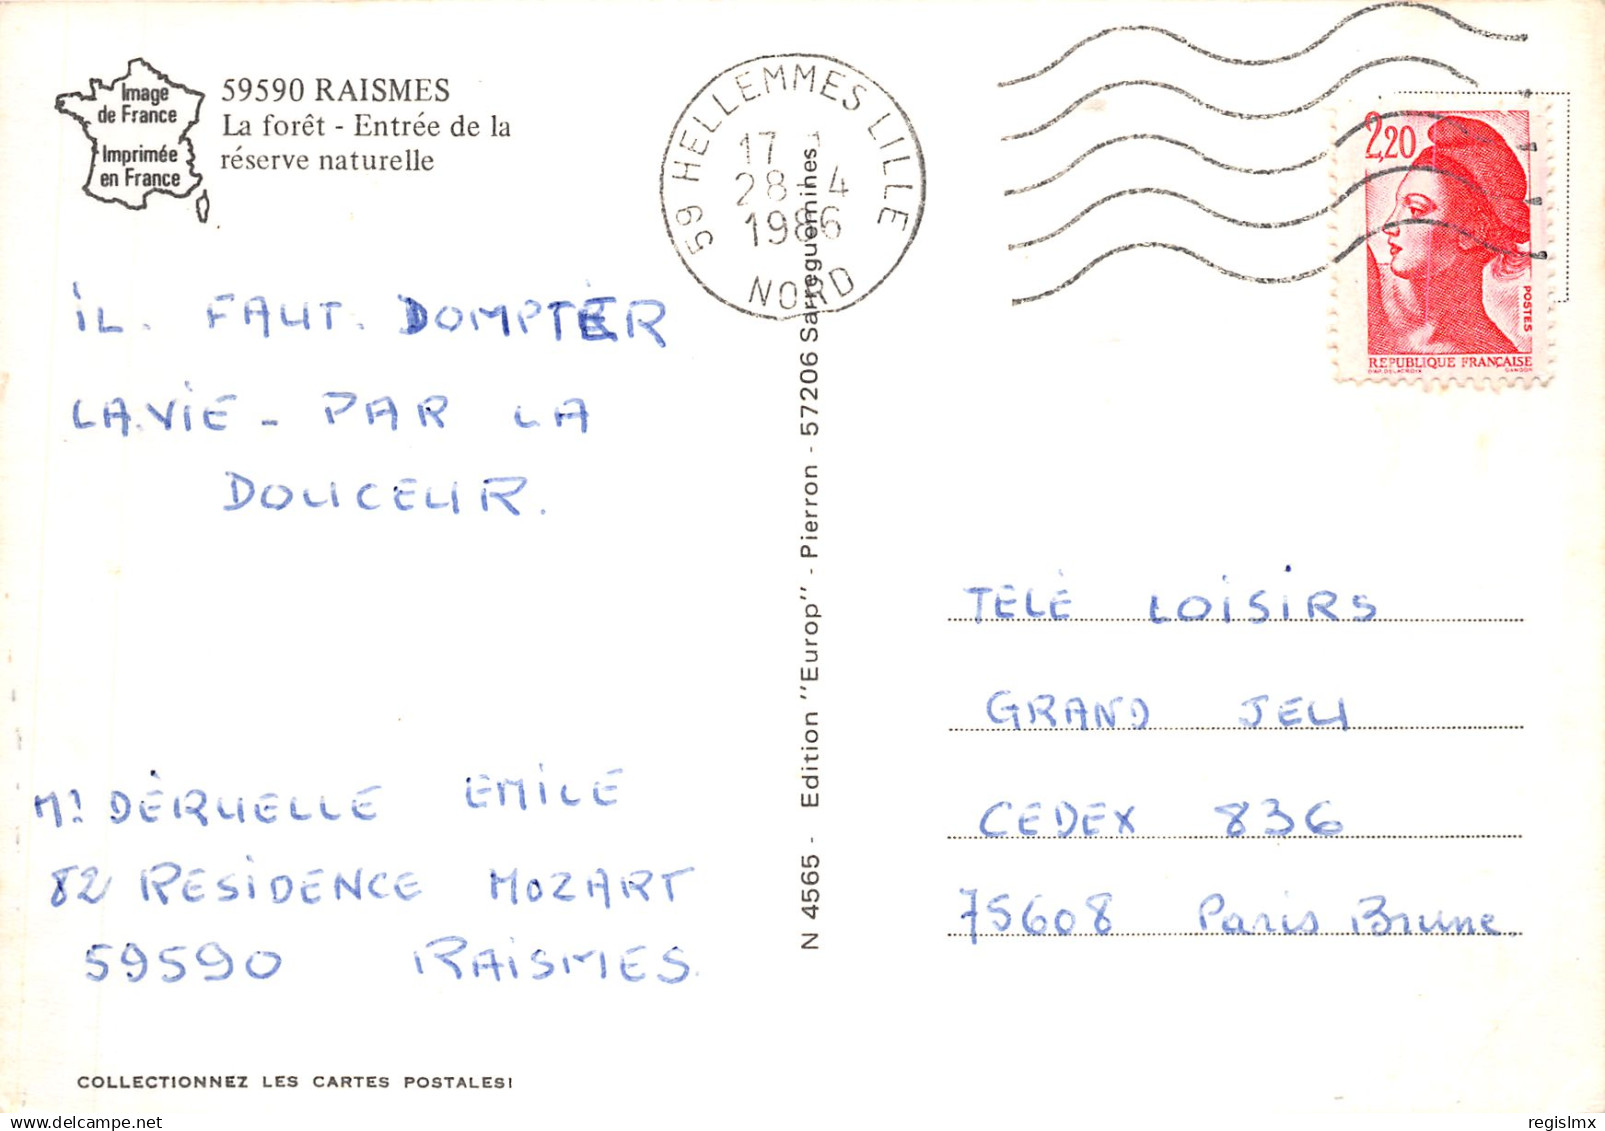 Image
de France
Imprimée
en France
59590 RAISMES
La forêt - Entrée de la
réserve naturelle
59 HELLEMMES LILLE
17
28-4
1986
NORD
2,20
POSTES
REPUBLIQUE FRANÇAISE
D'AP. DELACROIX GANDON
iL. FAUT. DOMPTER
LA.ViE - PAR LA
DOUCEUR.
Mr DÉRUELLE EMILE
82 RESIDENCE MOZART
59590 RAISMES.
COLLECTIONNEZ LES CARTES POSTALES!
N 4565 - Edition "Europ" - Pierron - 57206 Sarreguemines
TELÉ LOISIRS
GRAND JEU
CEDEX 836
75608 Paris Brune.
regislmx